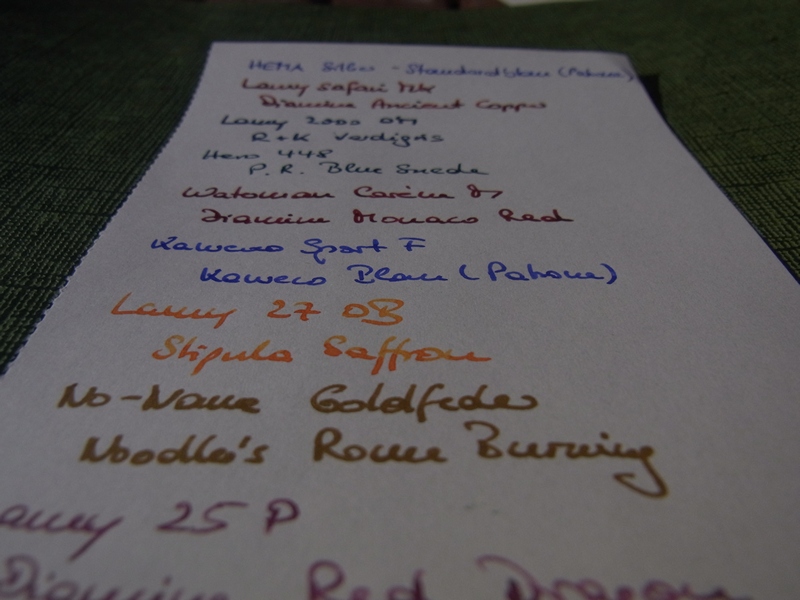 HEMA Silber - Standardblau (Patrone)
Lamy Safari MK
Diamine Ancient Copper
Lamy 2000 OM
R+K Verdigris
Hero 448
P. R. Blue Suede
Waterman Carène M
Diamine Monaco Red
Kaweco Sport F
Kaweco Blau (Patrone)
Lamy 27 OB
Stipula Saffron
No-Name Goldfeder
Noodler's Rome Burning
Lamy 25 P
Diamine Red Dragon